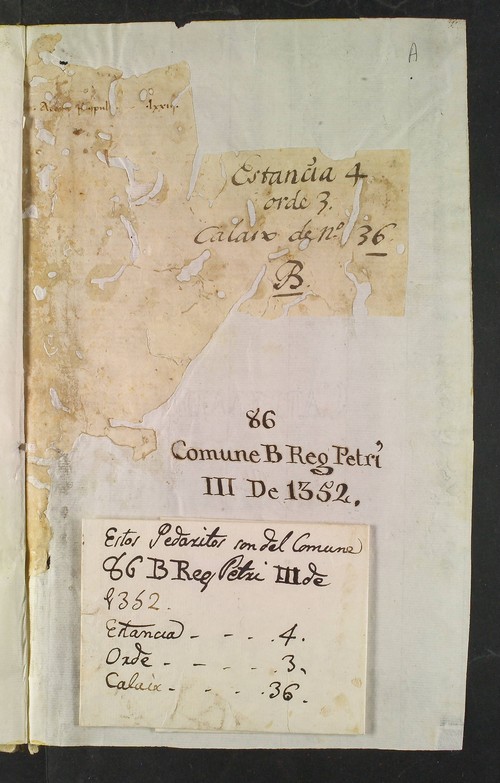 A
lxxii
Estancia 4
orde 3.
Calaix de nº 36
B.
86
Comune B Reg Petri
III De 1352.
Estos Pedazitos son del Comune
86 B Reg Petri III de
1352.
Estancia - - - . 4.
Orde - - - - . 3.
Calaix - - - . 36.